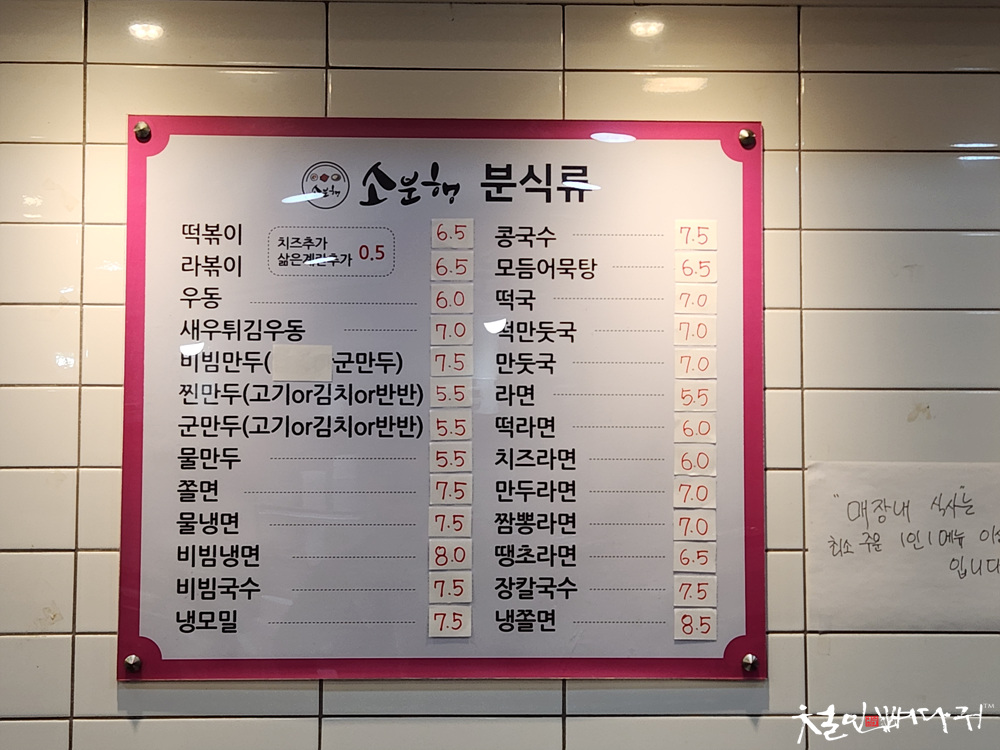 소분행 소분행 분식류
떡볶이 6.5
치즈추가
삶은계란추가 0.5
라볶이 6.5
우동 6.0
새우튀김우동 7.0
비빔만두( 군만두) 7.5
찐만두(고기or김치or반반) 5.5
군만두(고기or김치or반반) 5.5
물만두 5.5
쫄면 7.5
물냉면 7.5
비빔냉면 8.0
비빔국수 7.5
냉모밀 7.5
콩국수 7.5
모듬어묵탕 6.5
떡국 7.0
떡만둣국 7.0
만둣국 7.0
라면 5.5
떡라면 6.0
치즈라면 6.0
만두라면 7.0
짬뽕라면 7.0
땡초라면 6.5
장칼국수 7.5
냉쫄면 8.5
"매장내 식사"는
최소 주문 1인 1메뉴
입니다
철인뼈다귀™